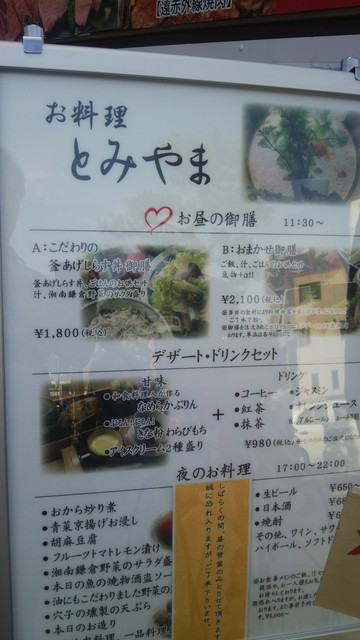 【遠赤外線焼肉】
お料理
とみやま
お昼の御膳 11:30〜
A:こだわりの
釜あげしらす丼御膳
釜あげしらす丼、ごはんのお供セット
汁、湘南鎌倉野菜のサラダ盛り
¥1,800(税込)
B:おまかせ御膳
ご飯、汁、ごはんのお供セット
魚物+α!!
¥2,100(税込)
デザート・ドリンクセット
甘味
●和食料理人が作る
なめらかぷりん
●ぷるん!ぷるん!
きな粉わらびもち
●アイスクリーム2種盛り
+
ドリンク
●コーヒー
●紅茶
●抹茶
●ジャスミン
¥980(税込)
夜のお料理 17:00〜22:00
●おから炒り煮
●青菜京揚げお浸し
●胡麻豆腐
●フルーツトマトレモン漬け
●湘南鎌倉野菜のサラダ盛
●本日の魚の焼物酒盗ソー
●油にもこだわりました野菜の
●穴子の燻製の天ぷら
●本日のお造り
しばらくの間、昼の営業のみとさせて頂きます
誠に恐れ入りますが、ご了承下さいませ。
●生ビール ¥650〜
●日本酒 ¥68
●焼酎 ¥6
その他、ワイン、サワ
ハイボール、ソフトド